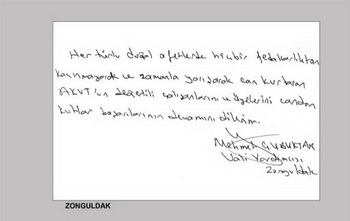 Her türlü doğal afetlerde hiçbir fedakarlıktan
kaçınmayarak ve zamanla yarışarak can kurtaran
AKUT'un değerli çalışanlarını ve üyelerini candan
kutlar başarılarının devamını dilerim.
Mehmet ÇUBUKTAR
Vali Yardımcısı
Zonguldak
ZONGULDAK